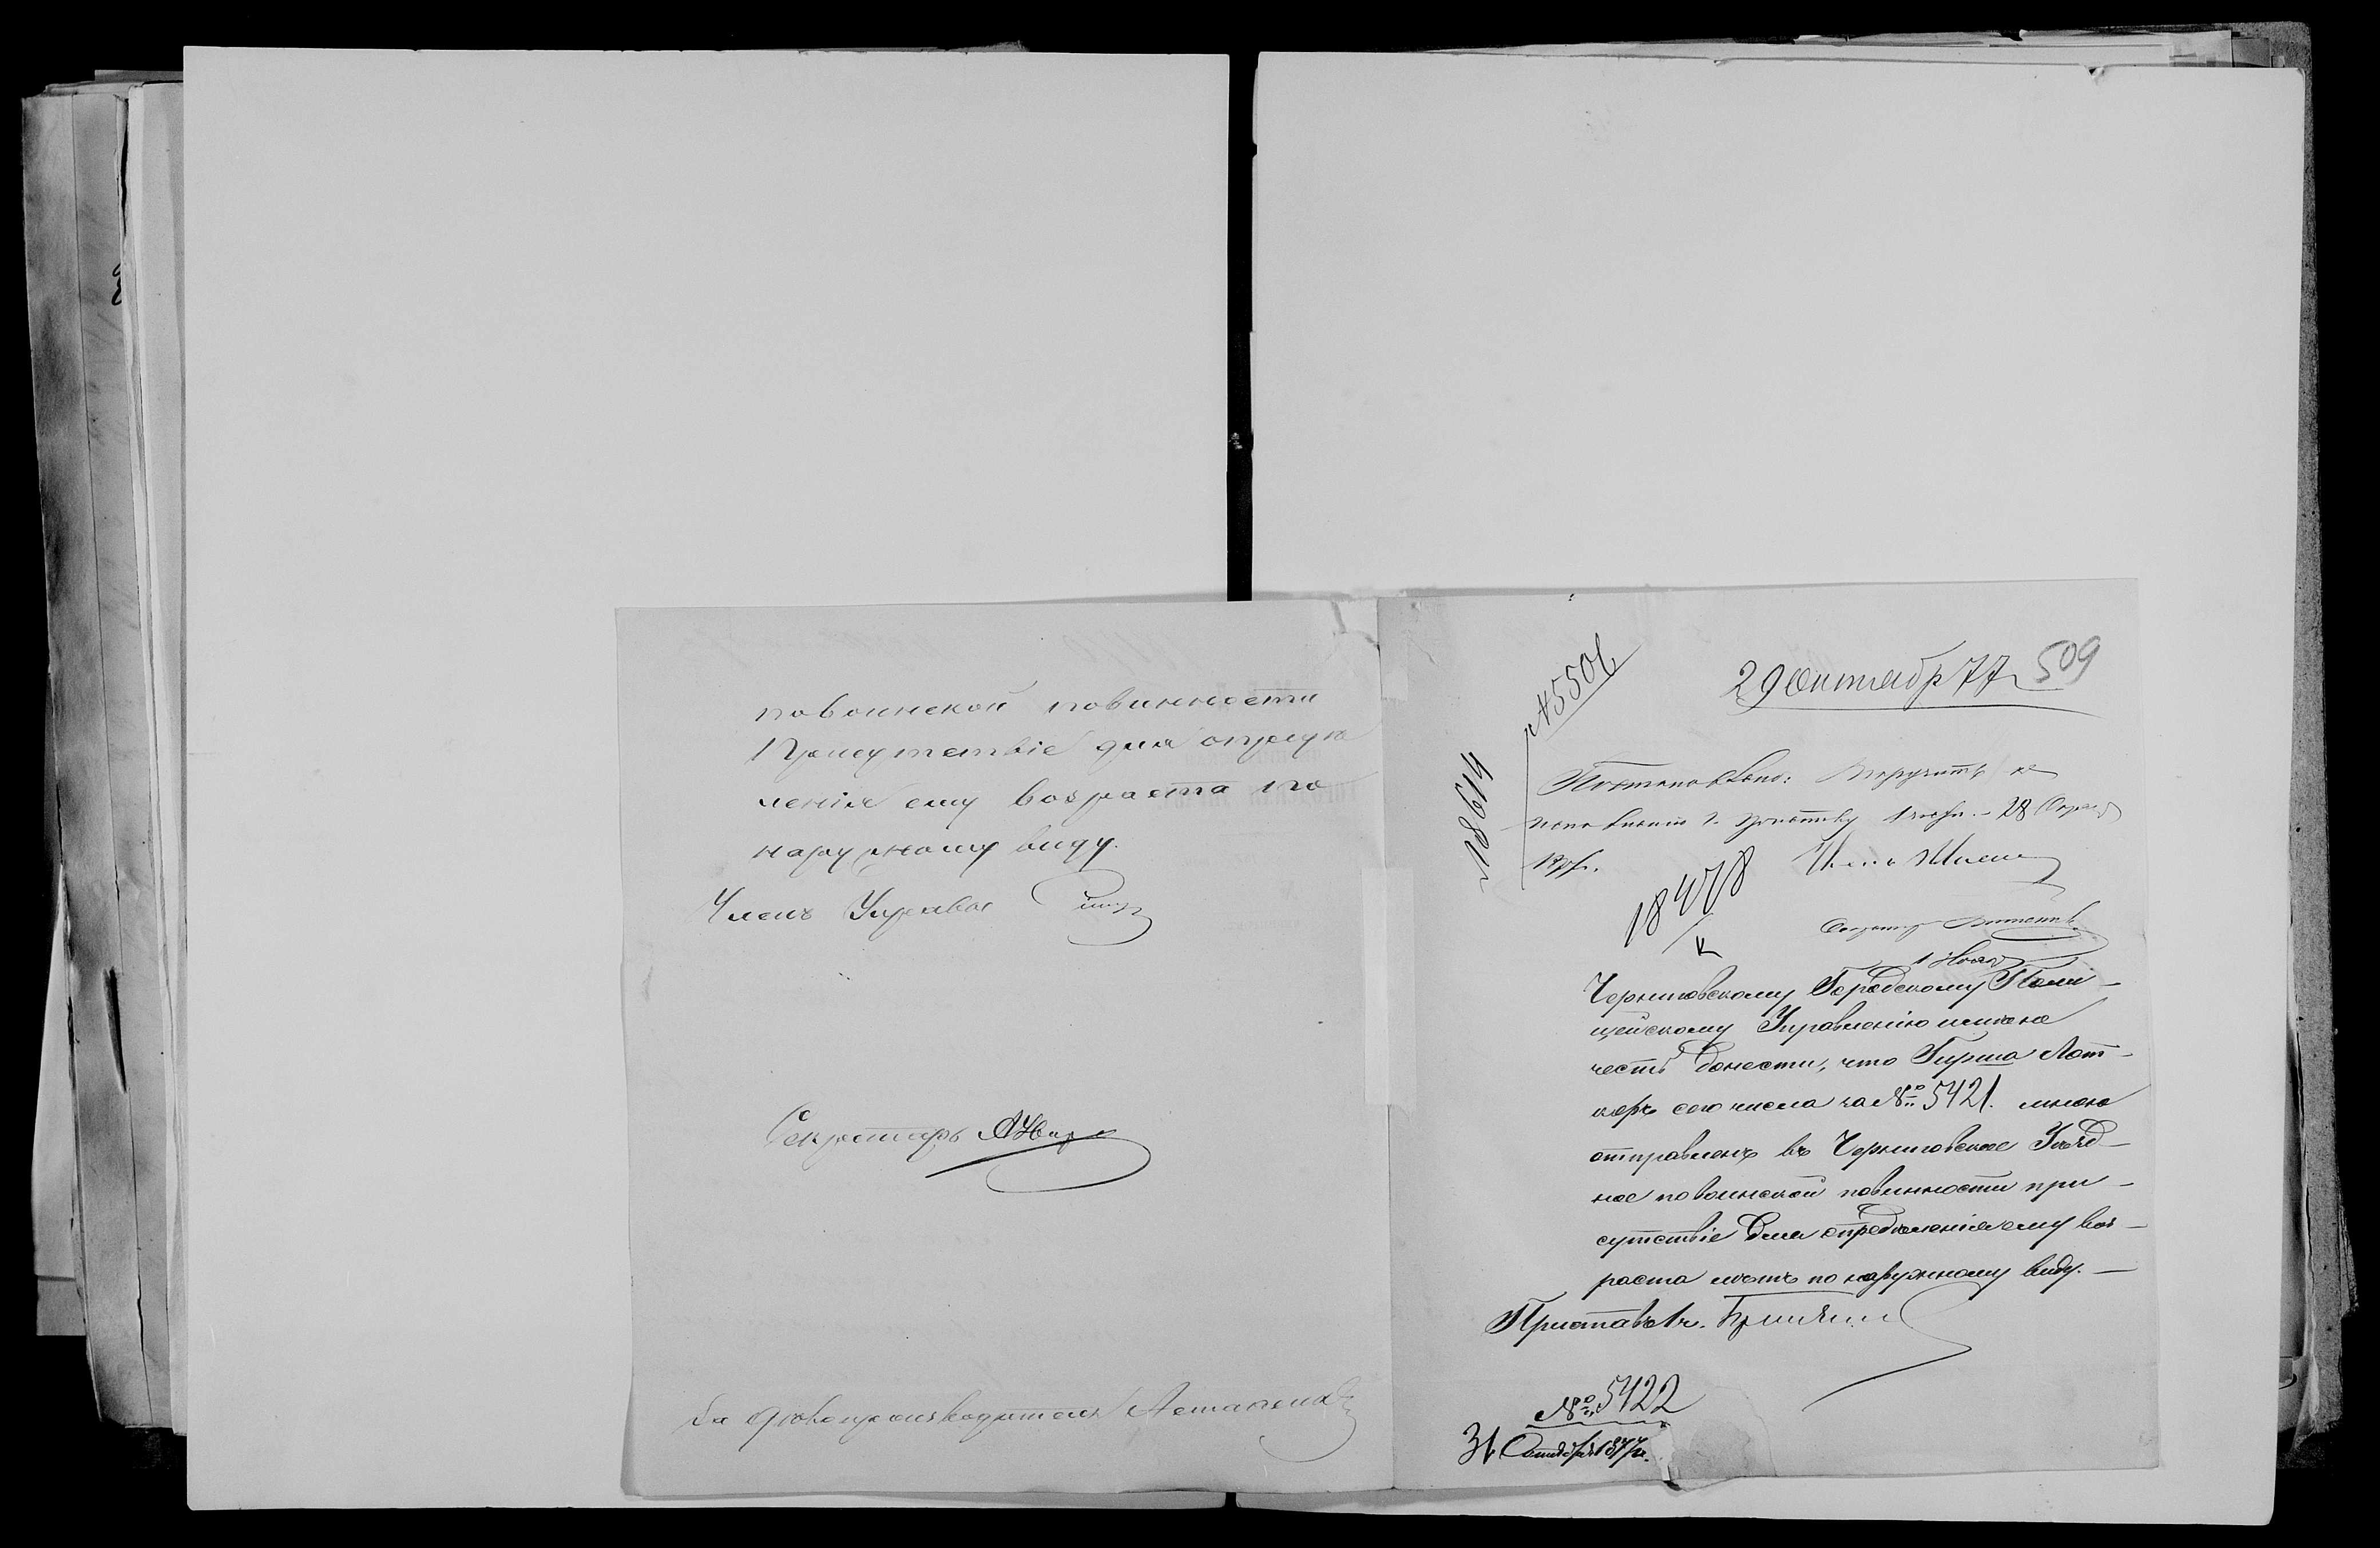 по воинской повинности
Присутствіе для опредѣ
ленія ему возраста по
наружному виду.
Членъ Управы
Секретарь
За дѣлопроизводителя
509
29 Октябр 77
№ 5506
18614
Постановлено: Поручить къ
исполненію г. приставу 1 части. 28 Октяб
1877 г.
18478
Секретарь
1 Нояб
Черниговскому Городскому Поли-
цейскому Управленію имѣю
честь донести, что Гирша Лот-
керъ сего числа за № 5421. мною
отправленъ въ Черниговское Уѣзд-
ное по воинской повинности при-
сутствіе для опредѣленія ему воз-
раста лѣтъ по наружному виду. —
Приставъ 1 ч.
№ 5422
31 Октября 1877 г.